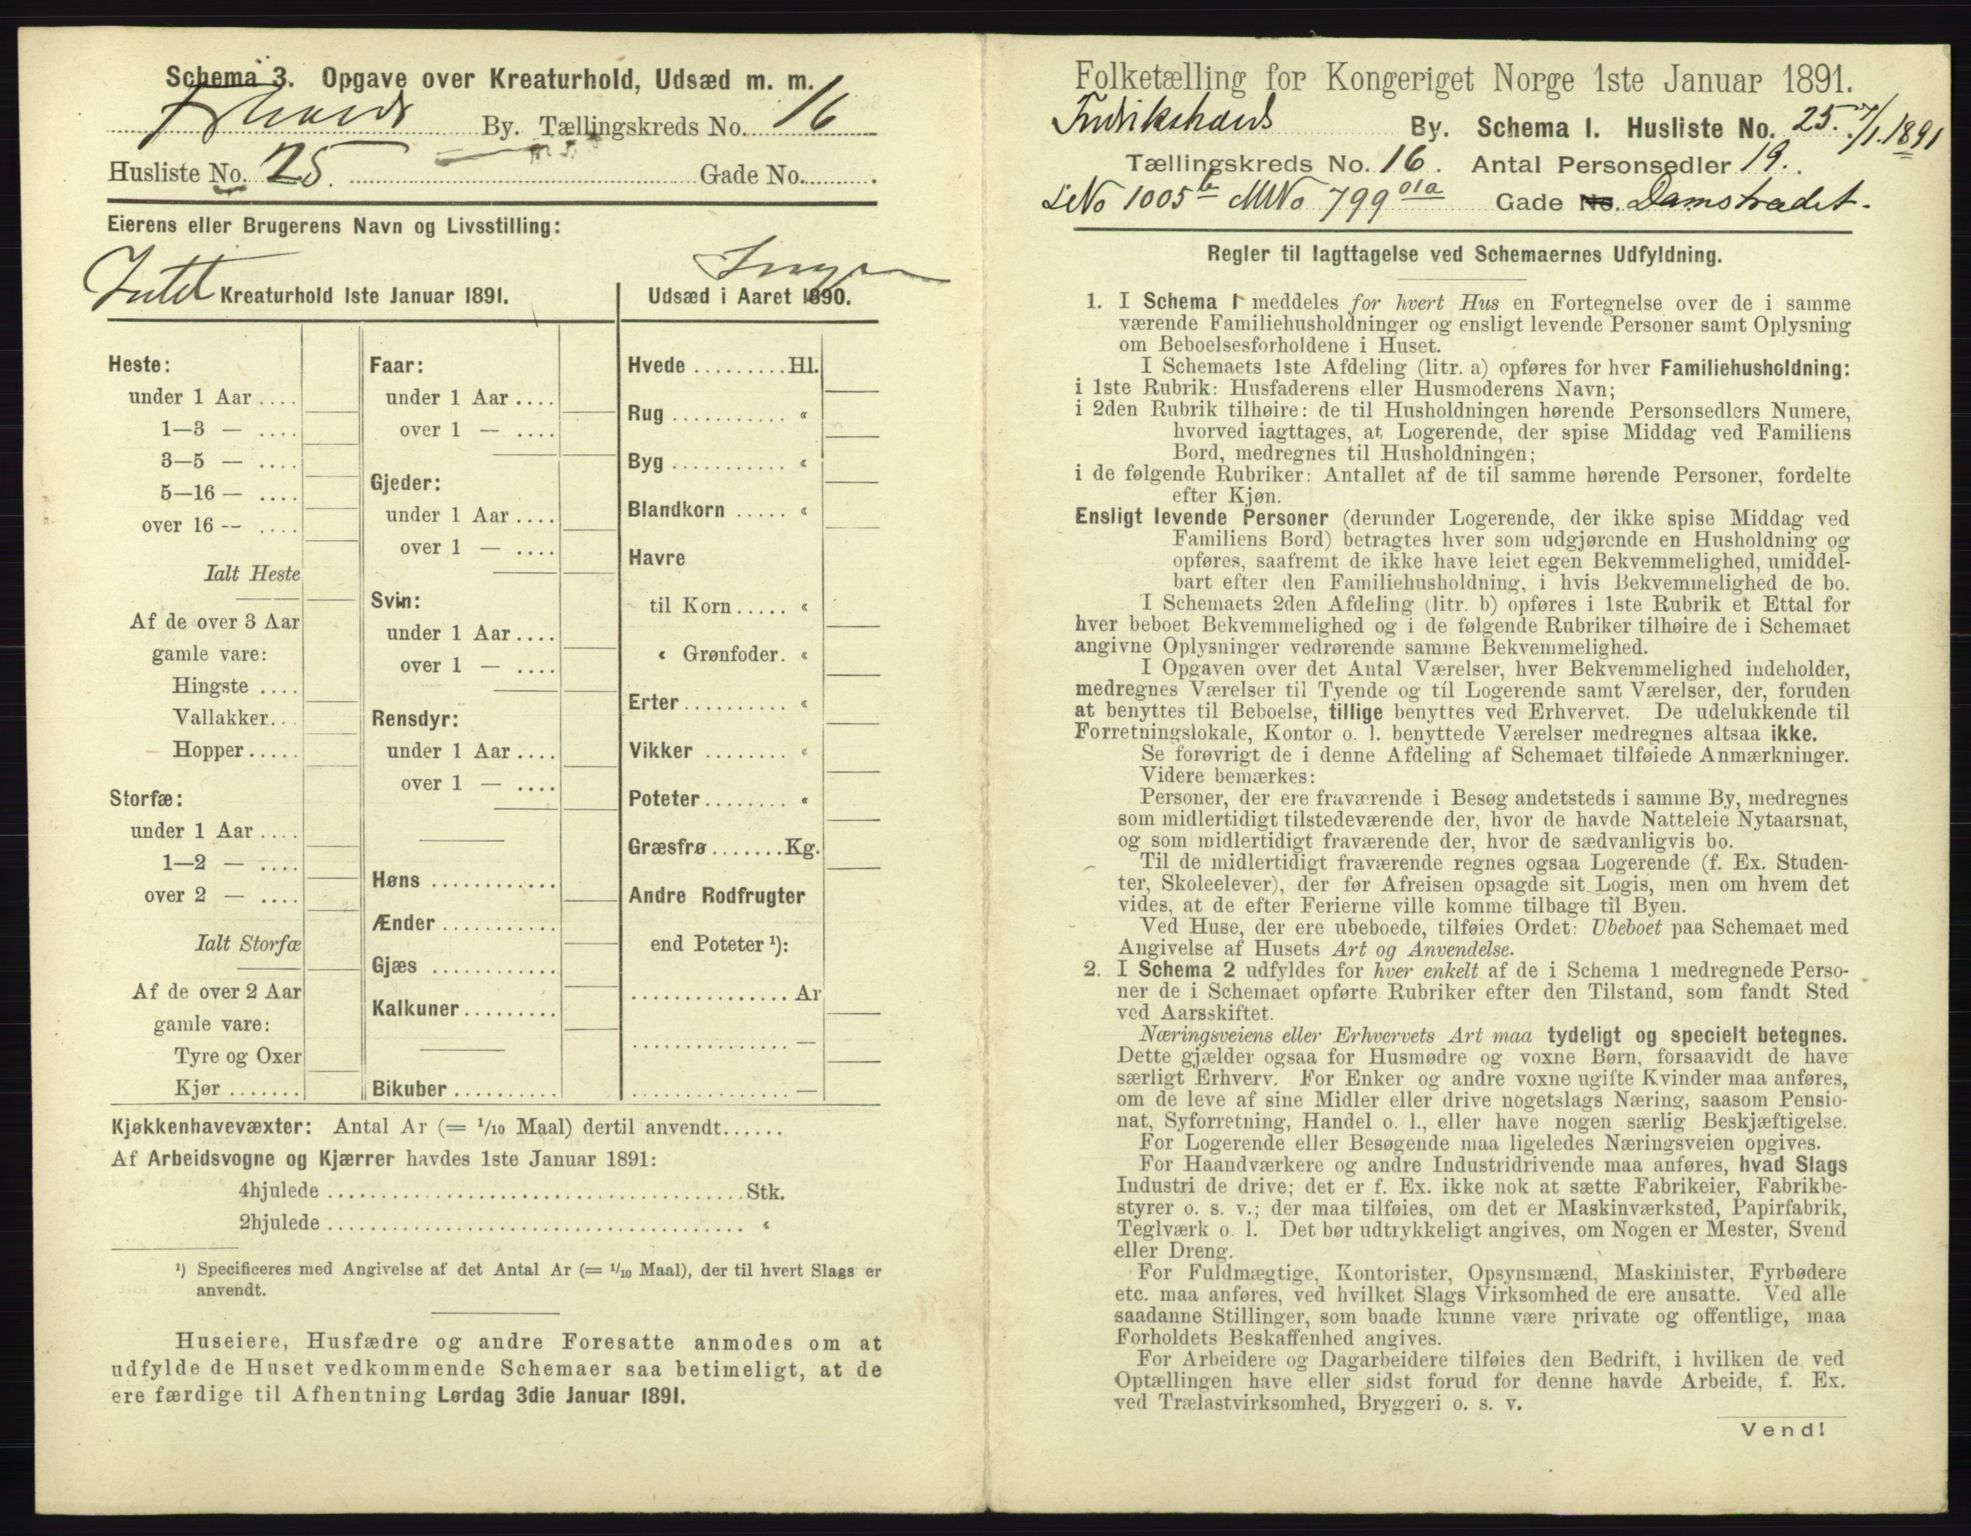 Schema 3. Opgave over Kreaturhold, Udsæd m. m.
Fr.hald By. Tællingskreds No. 16
Husliste No. 25. Gade No. .
Eierens eller Brugerens Navn og Livsstilling:
Intet Kreaturhold 1ste Januar 1891.
Ingen
Udsæd i Aaret 1890.
Heste:
under 1 Aar ....
1—3 — ....
3—5 — ....
5—16 — ....
over 16 -- ....
Ialt Heste
Af de over 3 Aar
gamle vare:
Hingste ....
Vallakker...
Hopper.....
Storfæ:
under 1 Aar ....
1—2 — ....
over 2 — ....
Ialt Storfæ
Af de over 2 Aar
gamle vare:
Tyre og Oxer
Kjør .......
Faar:
under 1 Aar ....
over 1 — ....
Gjeder:
under 1 Aar ....
over 1 — ....
Svin:
under 1 Aar ....
over 1 — ....
Rensdyr:
under 1 Aar ....
over 1 — ....
Høns ............
Ænder ...........
Gjæs ............
Kalkuner.........
Bikuber ..........
Hvede .........Hl.
Rug ........... «
Byg ........... «
Blandkorn ..... «
Havre
til Korn ..... «
« Grønfoder. «
Erter.......... «
Vikker ........ «
Poteter........ «
Græsfrø .......Kg.
Andre Rodfrugter
end Poteter ¹):
............... Ar
............... —
............... —
Kjøkkenhavevæxter: Antal Ar (= 1/10 Maal) dertil anvendt......
Af Arbeidsvogne og Kjærrer havdes 1ste Januar 1891:
4hjulede ....................................... Stk.
2hjulede ....................................... «
¹) Specificeres med Angivelse af det Antal Ar (= 1/10 Maal), der til hvert Slags er
anvendt.
Huseiere, Husfædre og andre Foresatte anmodes om at
udfylde de Huset vedkommende Schemaer saa betimeligt, at de
ere færdige til Afhentning Lørdag 3die Januar 1891.
Folketælling for Kongeriget Norge 1ste Januar 1891.
Fredrikshalds By. Schema I. Husliste No. 25. 7/1. 1891
Tællingskreds No. 16. Antal Personsedler 19.
LNo 1005 b MNo 799 01a Gade No. Damstrædet.
Regler til Iagttagelse ved Schemaernes Udfyldning.
1. I Schema 1 meddeles for hvert Hus en Fortegnelse over de i samme
værende Familiehusholdninger og ensligt levende Personer samt Oplysning
om Beboelsesforholdene i Huset.
I Schemaets 1ste Afdeling (litr. a) opføres for hver Familiehusholdning:
i 1ste Rubrik: Husfaderens eller Husmoderens Navn;
i 2den Rubrik tilhøire: de til Husholdningen hørende Personsedlers Numere,
hvorved iagttages, at Logerende, der spise Middag ved Familiens
Bord, medregnes til Husholdningen;
i de følgende Rubriker: Antallet af de til samme hørende Personer, fordelte
efter Kjøn.
Ensligt levende Personer (derunder Logerende, der ikke spise Middag ved
Familiens Bord) betragtes hver som udgjørende en Husholdning og
opføres, saafremt de ikke have leiet egen Bekvemmelighed, umiddel-
bart efter den Familiehusholdning, i hvis Bekvemmelighed de bo.
I Schemaets 2den Afdeling (litr. b) opføres i 1ste Rubrik et Ettal for
hver beboet Bekvemmelighed og i de følgende Rubriker tilhøire de i Schemaet
angivne Oplysninger vedrørende samme Bekvemmelighed.
I Opgaven over det Antal Værelser, hver Bekvemmelighed indeholder,
medregnes Værelser til Tyende og til Logerende samt Værelser, der, foruden
at benyttes til Beboelse, tillige benyttes ved Erhvervet. De udelukkende til
Forretningslokale, Kontor o. l. benyttede Værelser medregnes altsaa ikke.
Se forøvrigt de i denne Afdeling af Schemaet tilføiede Anmærkninger.
Videre bemærkes:
Personer, der ere fraværende i Besøg andetsteds i samme By, medregnes
som midlertidigt tilstedeværende der, hvor de havde Natteleie Nytaarsnat,
og som midlertidigt fraværende der, hvor de sædvanligvis bo.
Til de midlertidigt fraværende regnes ogsaa Logerende (f. Ex. Studen-
ter, Skoleelever), der før Afreisen opsagde sit Logis, men om hvem det
vides, at de efter Ferierne ville komme tilbage til Byen.
Ved Huse, der ere ubeboede, tilføies Ordet: Ubeboet paa Schemaet med
Angivelse af Husets Art og Anvendelse.
2. I Schema 2 udfyldes for hver enkelt af de i Schema 1 medregnede Perso-
ner de i Schemaet opførte Rubriker efter den Tilstand, som fandt Sted
ved Aarsskiftet.
Næringsveiens eller Erhvervets Art maa tydeligt og specielt betegnes.
Dette gjælder ogsaa for Husmødre og voxne Børn, forsaavidt de have
særligt Erhverv. For Enker og andre voxne ugifte Kvinder maa anføres,
om de leve af sine Midler eller drive nogetslags Næring, saasom Pensio-
nat, Syforretning, Handel o. l., eller have nogen særlig Beskjæftigelse.
For Logerende eller Besøgende maa ligeledes Næringsveien opgives.
For Haandværkere og andre Industridrivende maa anføres, hvad Slags
Industri de drive; det er f. Ex. ikke nok at sætte Fabrikeier, Fabrikbe-
styrer o. s. v.; der maa tilføies, om det er Maskinværksted, Papirfabrik,
Teglværk o. l. Det bør udtrykkeligt angives, om Nogen er Mester, Svend
eller Dreng.
For Fuldmægtige, Kontorister, Opsynsmænd, Maskinister, Fyrbødere
etc. maa anføres, ved hvilket Slags Virksomhed de ere ansatte. Ved alle
saadanne Stillinger, som baade kunne være private og offentlige, maa
Forholdets Beskaffenhed angives.
For Arbeidere og Dagarbeidere tilføies den Bedrift, i hvilken de ved
Optællingen have eller sidst forud for denne havde Arbeide, f. Ex.
ved Trælastvirksomhed, Bryggeri o. s. v.
Vend!